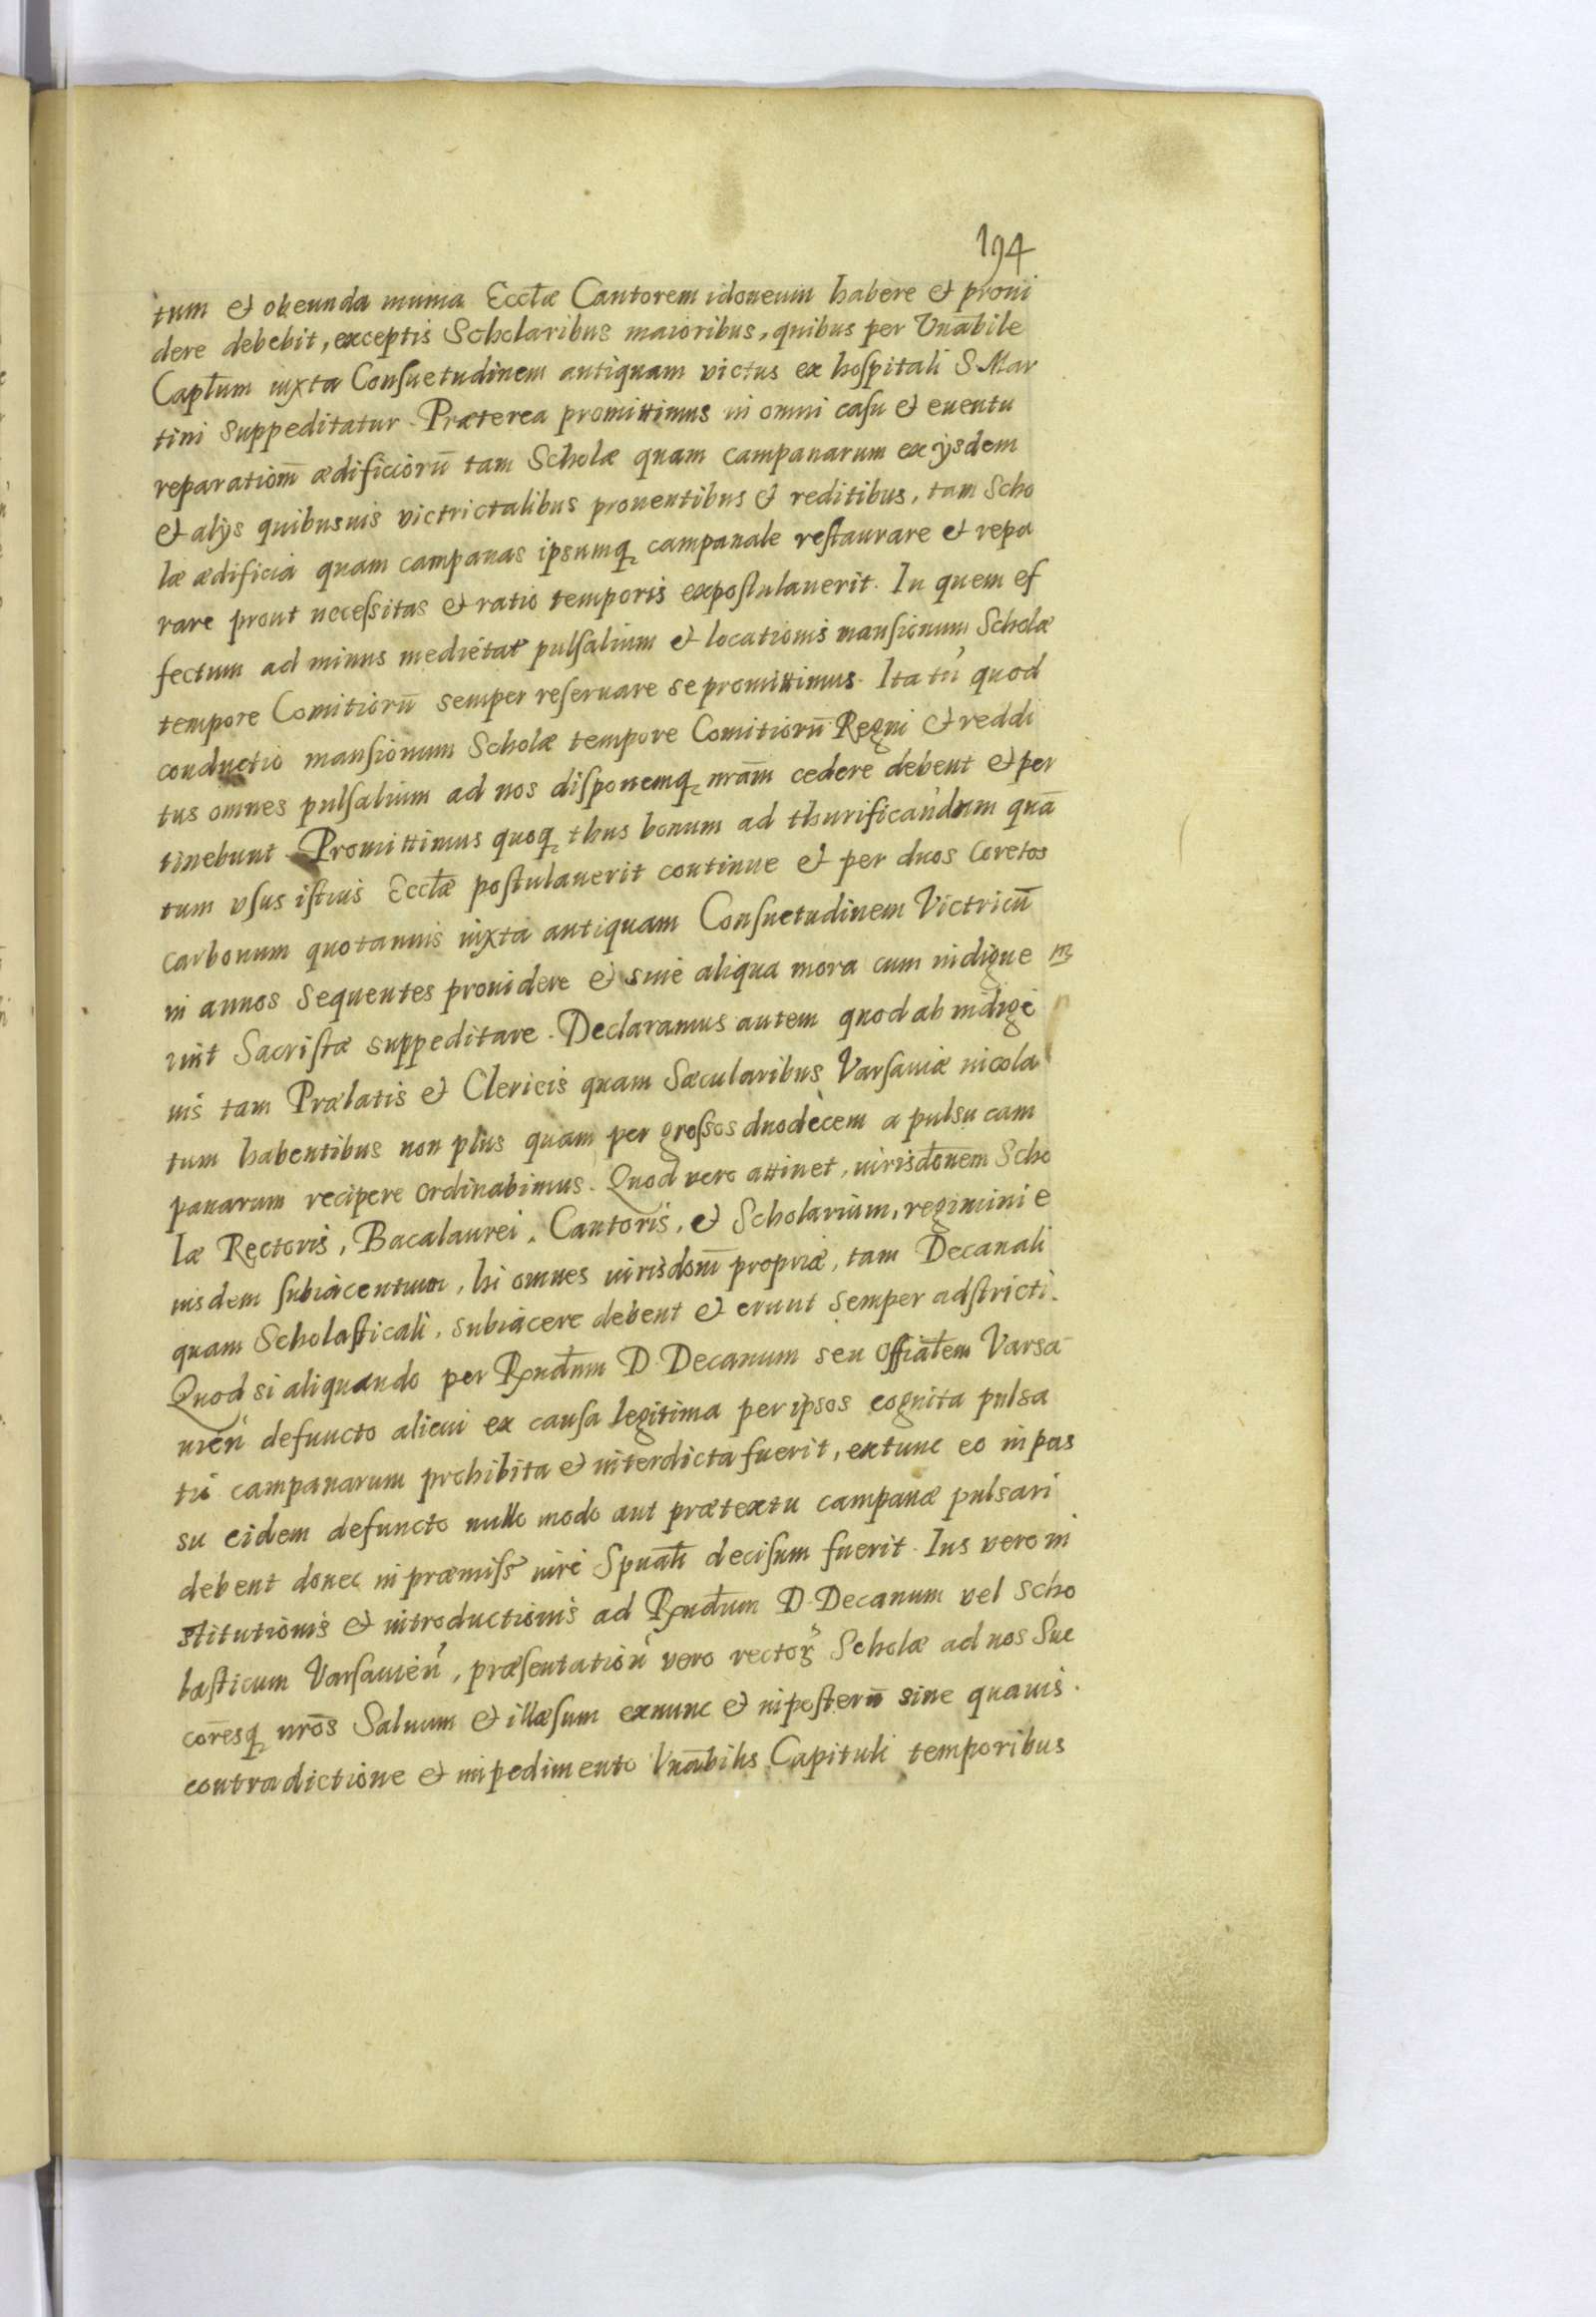 194
tum et obeunda munia Eccl̃æ Cantorem idoneum habere et proui
dere debebit, exceptis Scholaribus maioribus, quibus per Vnãbile
Capt̃um iuxta Consuetudinem antiquam victus ex hospitali S. Mar
tini suppeditatur. Præterea promittimus in omni casu et euentu
reparatiom̃ ædificiorũ tam Scholæ quam campanarum ex ijsdem
et alijs quibusuis victrictalibus prouentibus et reditibus, tam Scho
læ ædificia quam campanas ipsumq campanale restaurare et repa
rare prout necessitas et ratio temporis expostulauerit. In quem ef
fectum ad minus medietat pulsalium et locationis mansionum Scholæ
tempore Comitiorũ semper reseruare se promittimus. Ita tñ quod
conductio mansionum Scholæ tempore Comitiorũ Regni et reddi
tus omnes pulsalium ad nos disponemq nrãm cedere debent et per
tinebunt. Promittimus quoq thus bonum ad thurificandum quã
tum vsus istius Eccl̃æ postulauerit continue et per duos Coretos
carbonum quotannis iuxta antiquam Consuetudinem Victricũ
in annos sequentes prouidere et sine aliqua mora cum indigue
rint Sacristæ suppeditare. Declaramus autem quod ab indige
nis tam Prælatis et Clericis quam Sæcularibus Varsauiæ incola
tum habentibus non plus quam per grossos duodecem a pulsu cam
panarum recipere ordinabimus. Quod vero attinet, iurisdõnem Scho
læ Rectoris, Bacalaurei, Cantoris, et Scholarium, regimini e
iusdem subiacentium, hi omnes iurisdom̃ propriæ, tam Decanali
quam Scholasticali, subiacere debent et erunt semper adstricti.
Quod si aliquando per Rndum D. Decanum seu Offiãtem Varsa
uień defuncto alicui ex causa legitima per ipsos cognita pulsa
tio campanarum prohibita et interdicta fuerit, extunc eo in pas
su eidem defuncto nullo modo aut prætextu campanæ pulsari
debent donec in præmiss iure Spuali decisum fuerit. Ius vero in
stitutionis et introductionis ad Rndum D. Decanum vel Scho
lasticum Varsauień, præsentatioń vero rector Scholæ ad nos Suc
coresq nrõs Saluum et illæsum exnunc et inposterũ sine quauis
contradictione et impedimento Vnãbilis Capituli temporibus